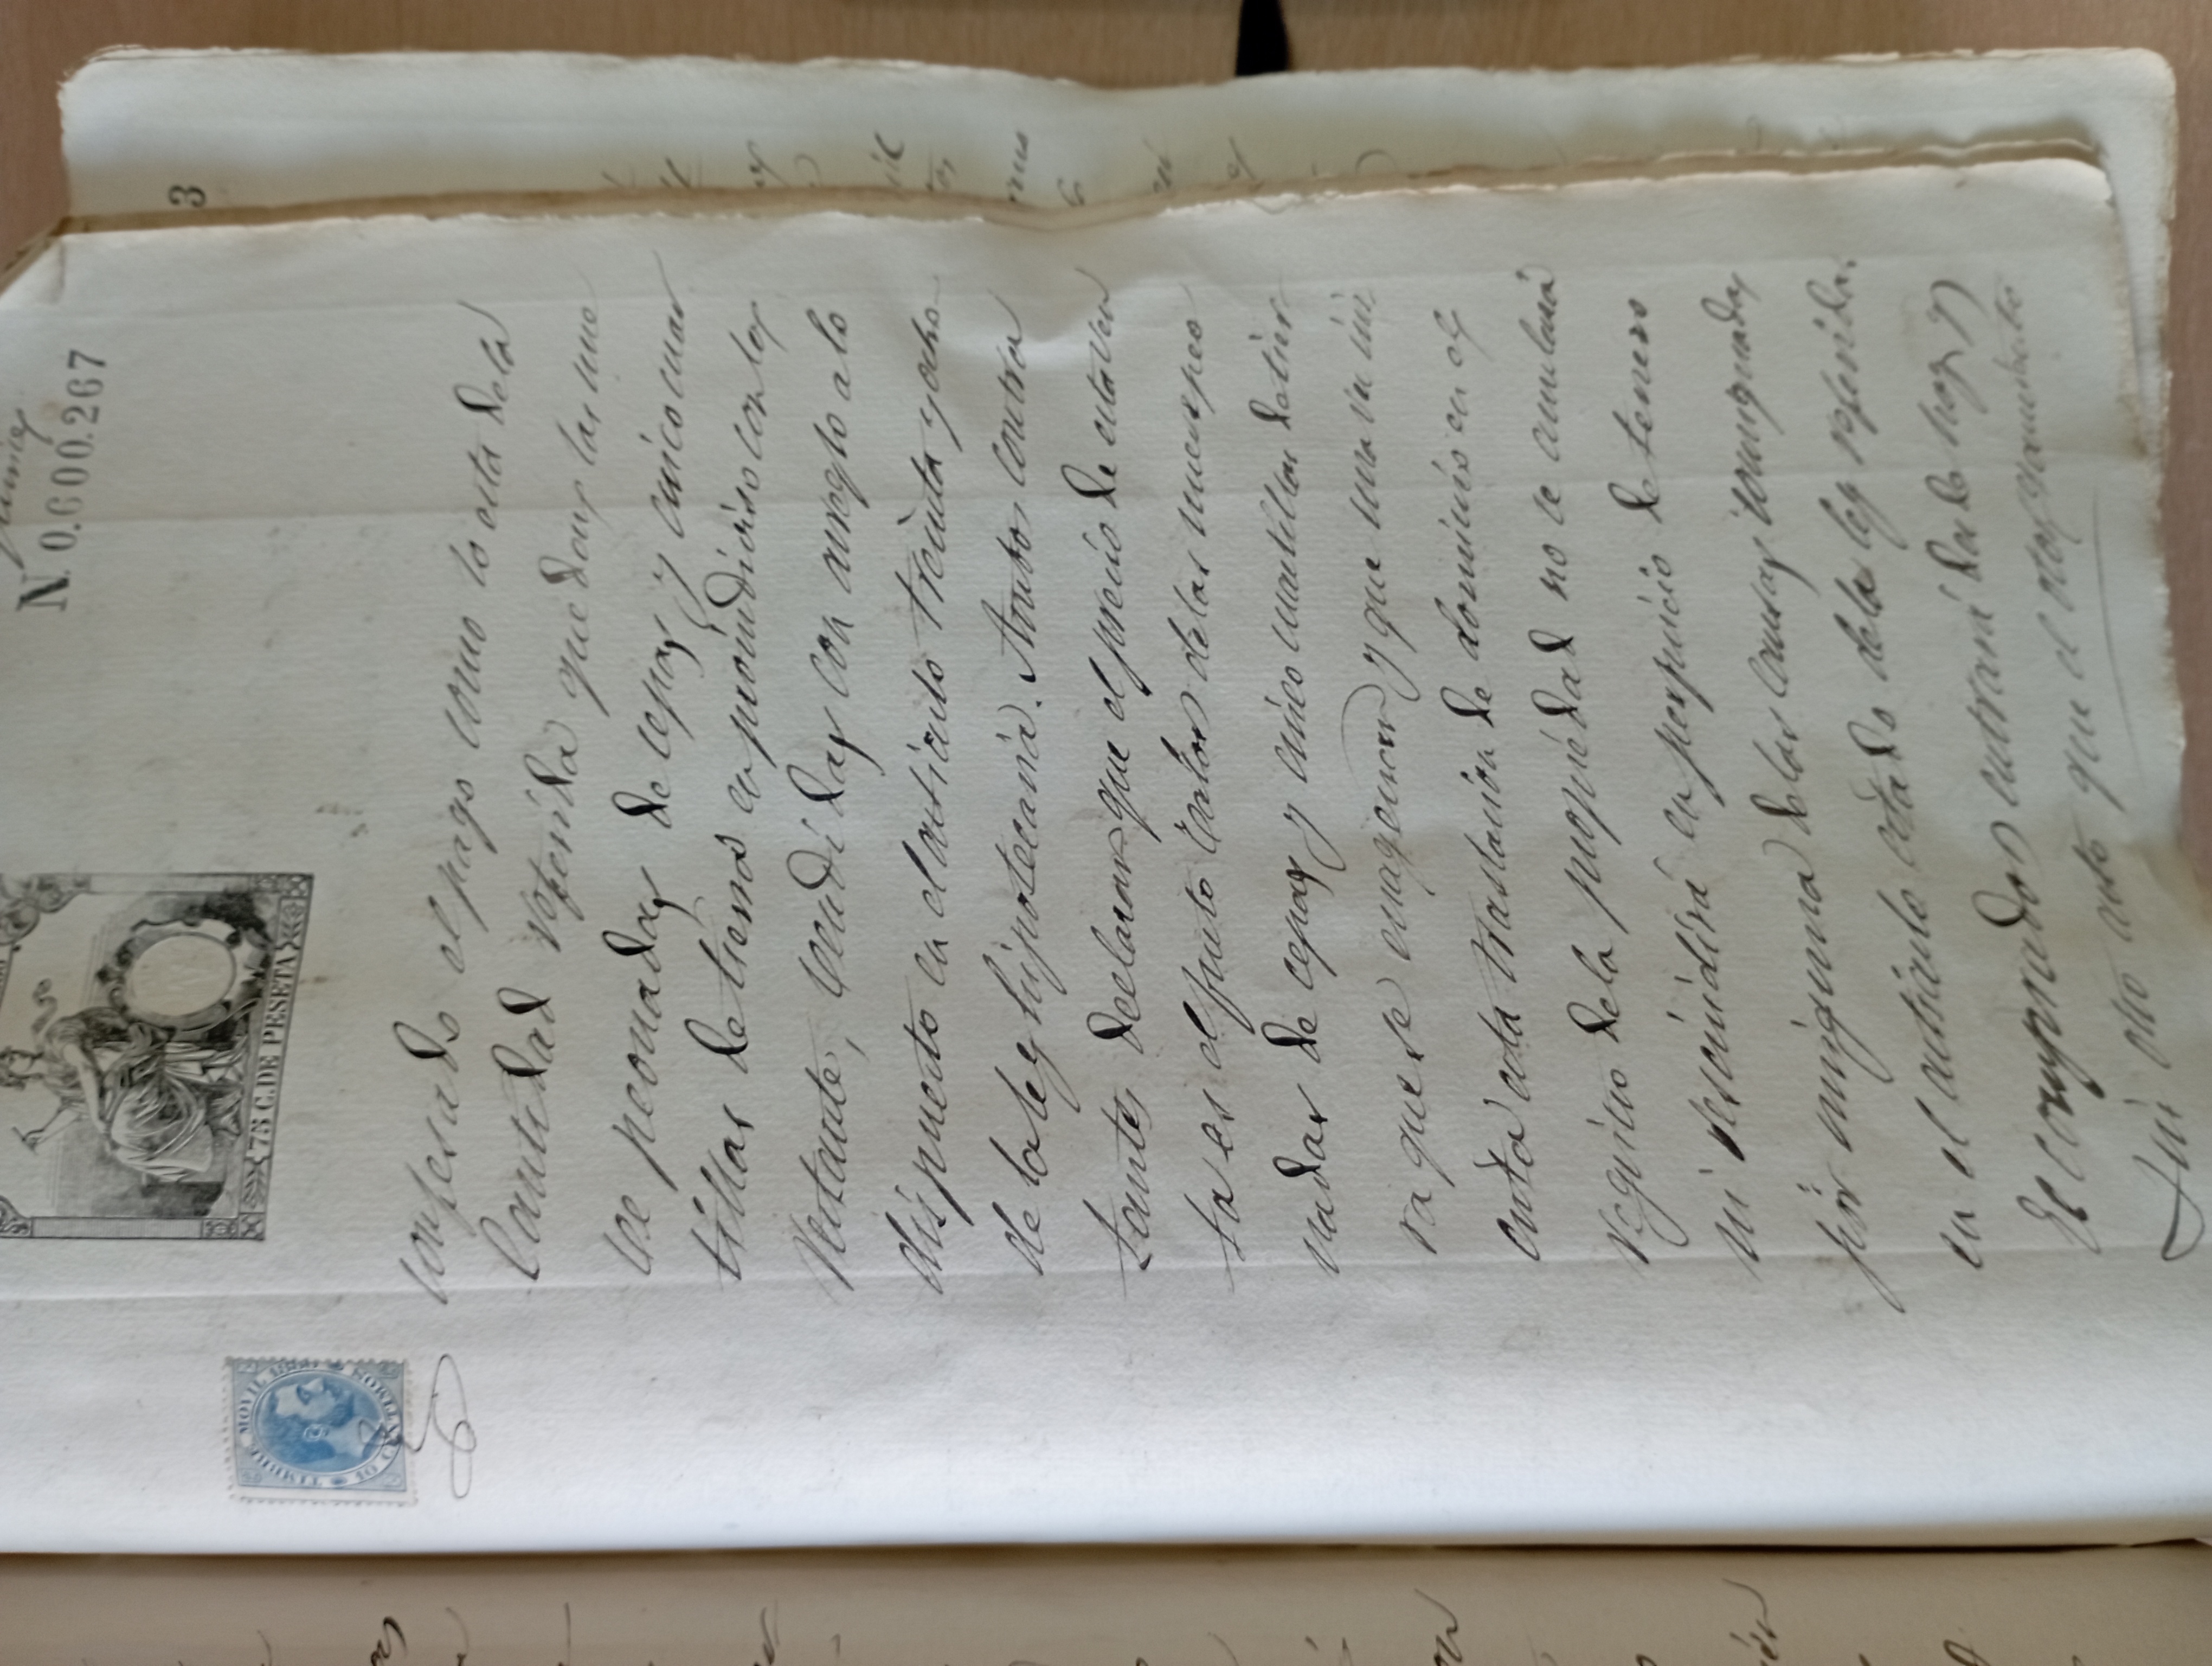 N. 0.600.267
3
75 C. DE PESETA
TIMBRE MOVIL
10 CENTIMOS
confesado el pago como lo esta de la
Cantidad referida quedan las nue
ve peonadas de cepas y cinco cuar
tillas de tierra en proindiviso con los
restante, vendidas con arreglo a lo
dispuesto en el articulo treinta y ocho
de la ley hipotecaria. Ambos contra
tantes declaran que el precio de esta ven
ta es el justo valor de las nueve peo
nadas de cepas y cinco cuartillas de tier-
ra que se enagenan y que una vez ins
crita esta traslacion de dominio en el
registro de la propiedad no se anulará
ni rescindirá en perjuicio de tercero
por ninguna de las causas consignadas
en el articulo citado de la ley referida.
El comprador entrará desde hoy y
sin otro acto que el otorgamiento